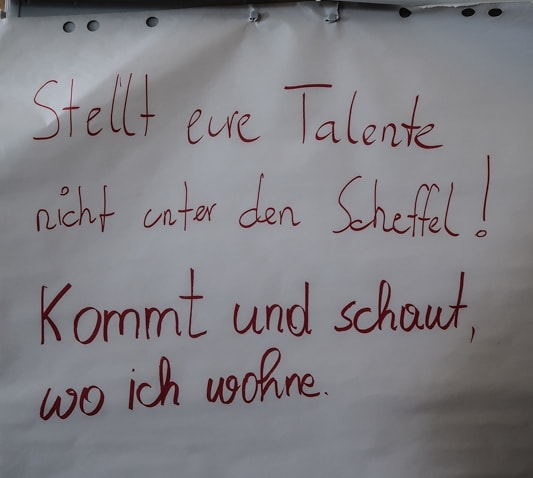 Stellt eure Talente
nicht unter den Scheffel!
Kommt und schaut,
wo ich wohne.